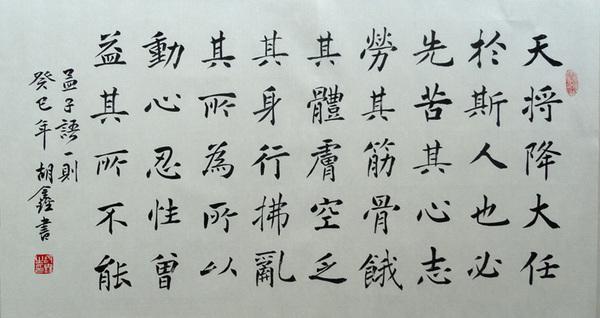 天將降大任
於斯人也必
先苦其心志
勞其筋骨餓
其體膚空乏
其身行拂亂
其所為所以
動心忍性曾
益其所不能
孟子語一則
癸巳年胡鑫書